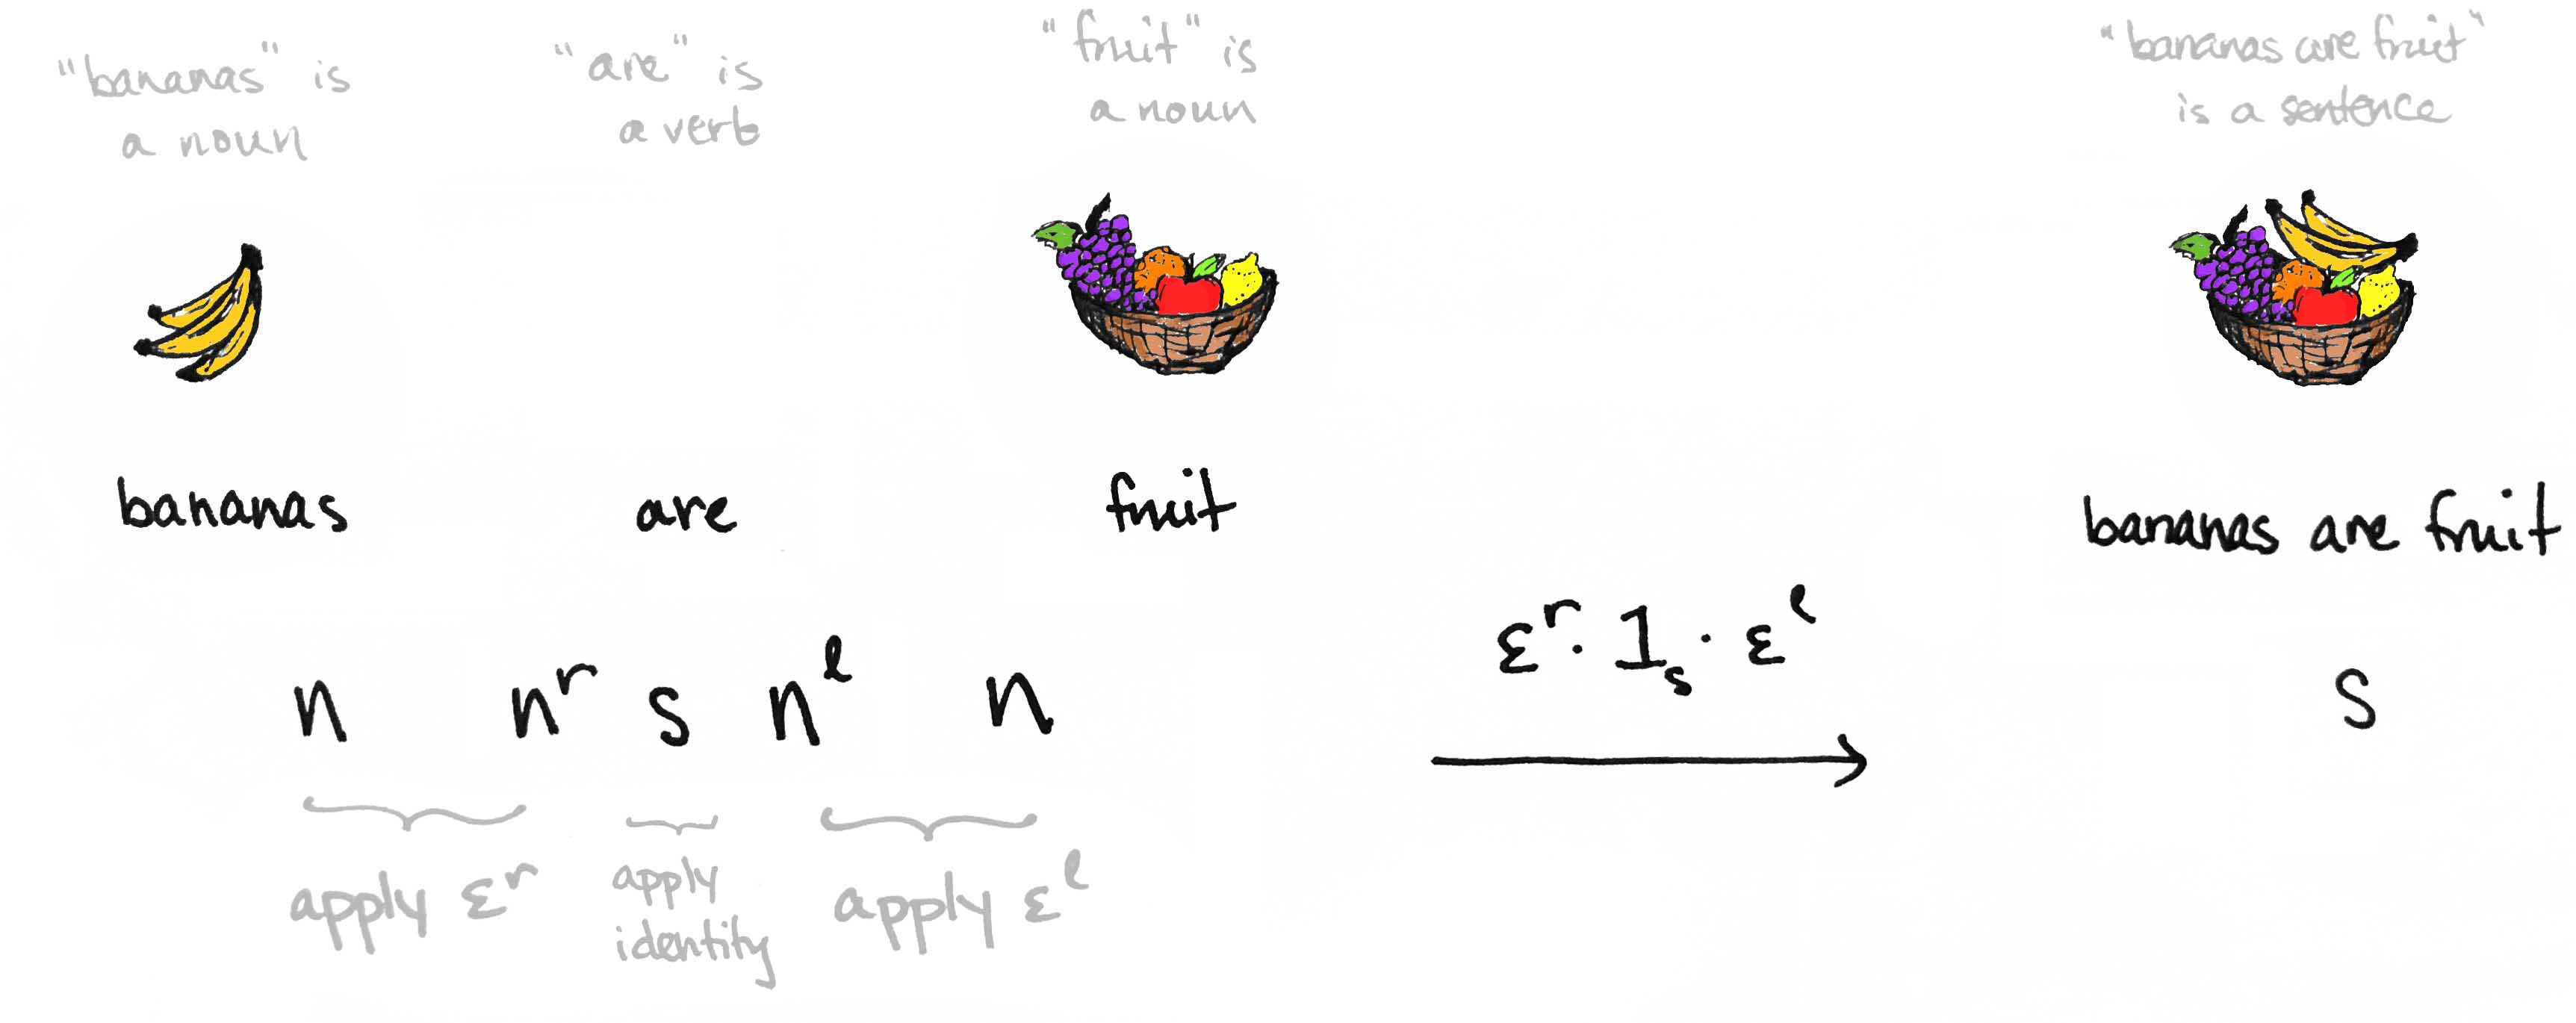 "bananas" is
a noun
"are" is
a verb
"fruit" is
a noun
"bananas are fruit"
is a sentence
bananas
are
fruit
bananas are fruit
n nʳ s nˡ n
εʳ · 1ₛ · εˡ
s
apply εʳ
apply
identity
apply εˡ